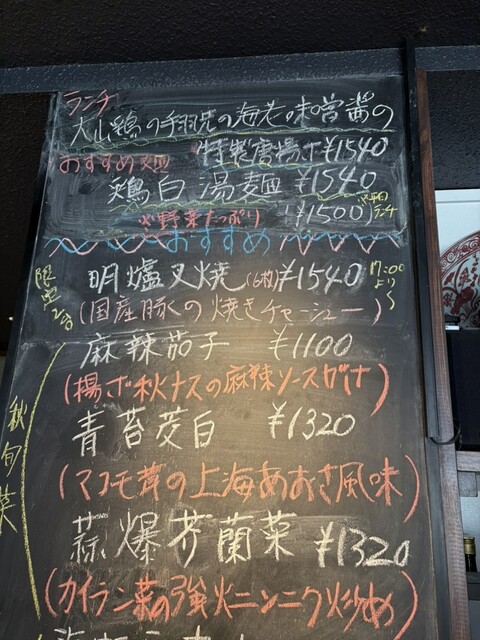 ランチ
大山鶏の手羽先の海老味噌醤の
特製唐揚げ ¥1540
おすすめ麺
鶏白湯麺 ¥1540
野菜たっぷり (¥1500) 平日ランチ
おすすめ
限定2台
明爐叉焼(6枚) ¥1540
17:00より〜
(国産豚の焼きチャーシュー)
秋旬菜
麻辣茄子 ¥1100
(揚げ秋ナスの麻辣ソースがけ)
青苔茭白 ¥1320
(マコモ茸の上海あおさ風味)
蒜爆芥蘭菜 ¥1320
(カイラン菜の強火ニンニク炒め)